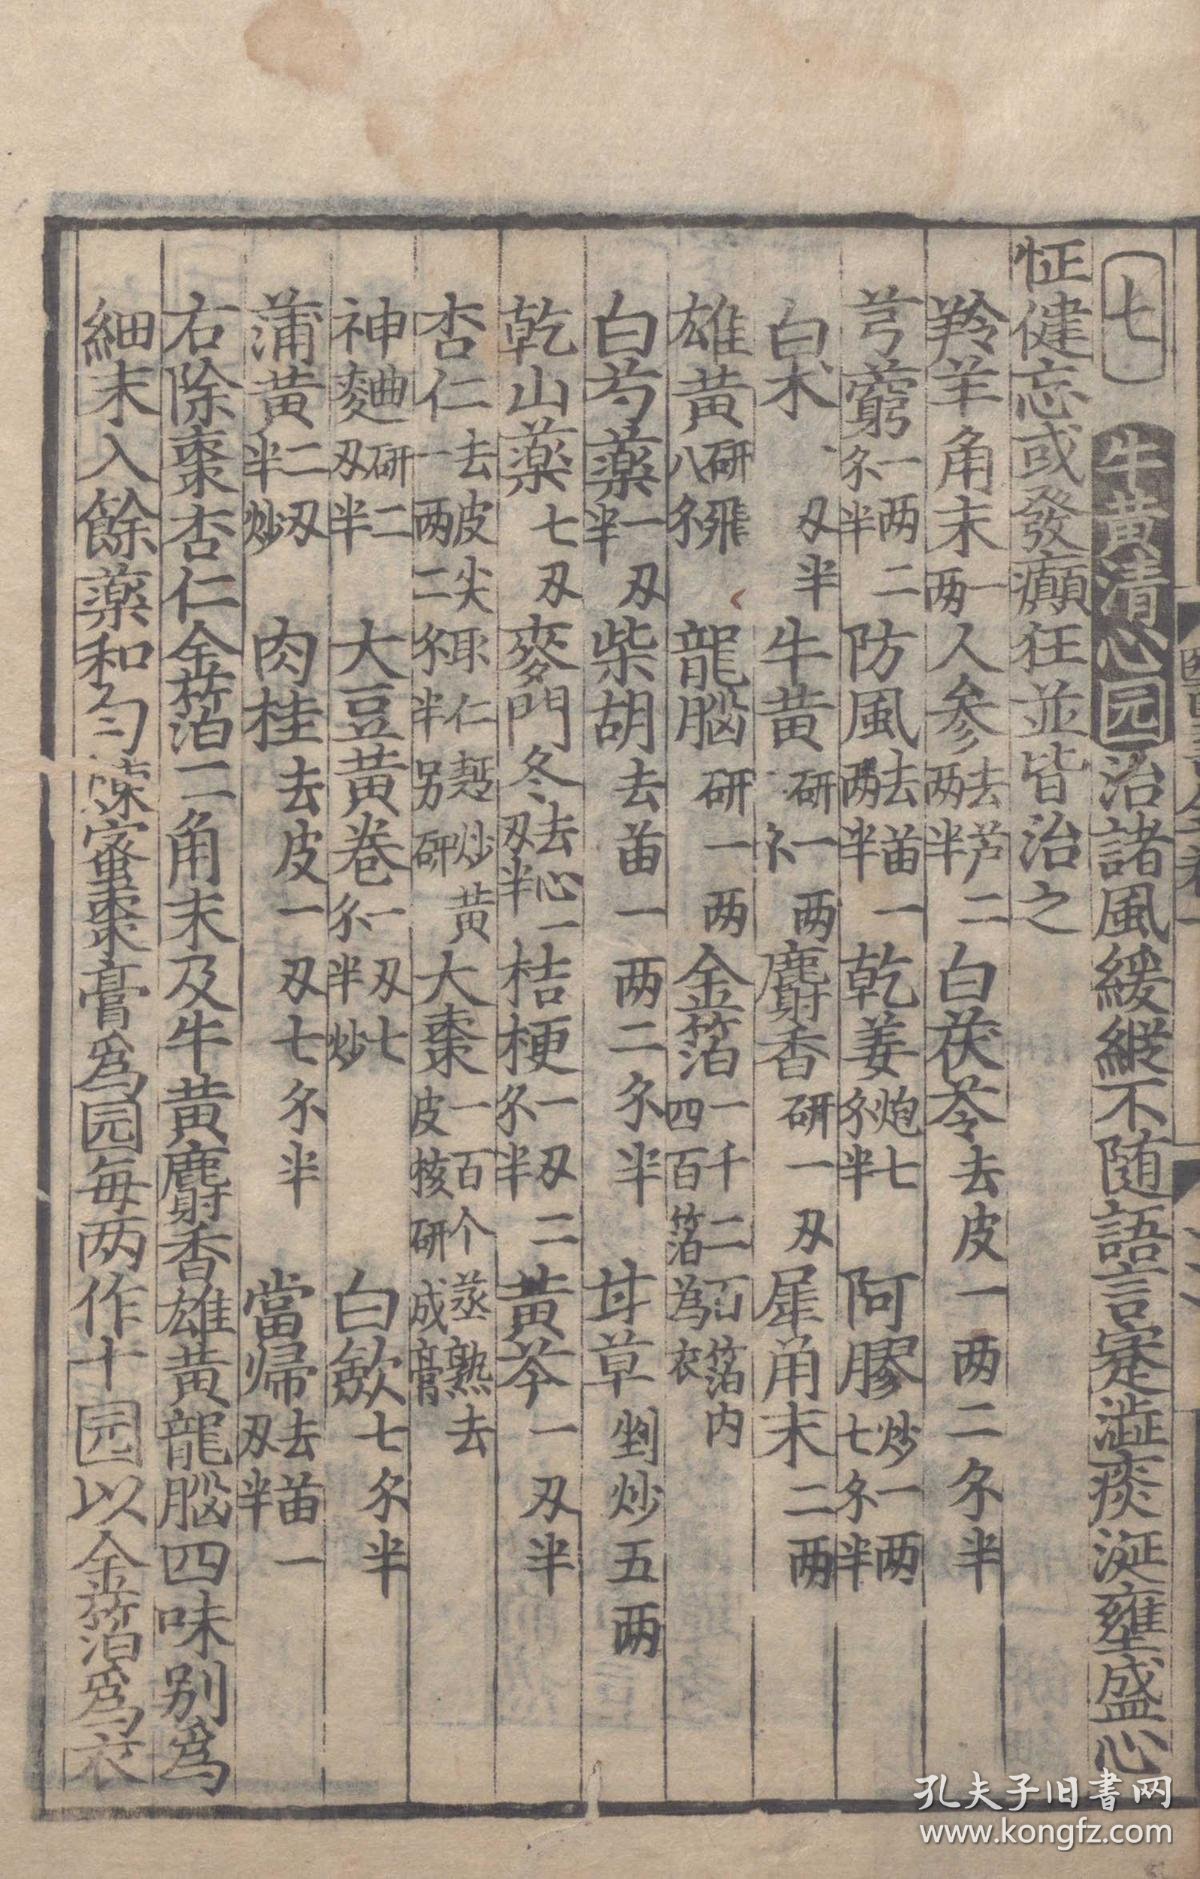 七 牛黄清心园治諸風緩縱不随語言蹇澁痰涎壅盛心
怔健忘或發癲狂並皆治之
羚羊角末一两 人参去芦二两半 白茯苓去皮一两二分半
芎藭一两二分半 防風去苗一两半 乾姜炮七分半 阿膠炒一两七分半
白朮刄半 牛黄研一两 麝香研一刄 犀角末二两
雄黄研飛八分 龍腦研一两 金箔一千二百箔内四百箔為衣
白芍藥一刄半 柴胡去苗一两二分半 甘草剉炒五两
乾山藥七刄 麥門冬去心一刄半 桔梗一刄二分半 黄芩一刄半
杏仁去皮尖双仁麸炒黄一两二分半另研 大棗一百个蒸熟去皮核研成膏
神麯研二刄半 大豆黄卷一刄七分半炒 白斂七分半
蒲黄二刄半炒 肉桂去皮一刄七分半 當歸去苗一刄半
右除棗杏仁金箔二角末及牛黄麝香雄黄龍腦四味别為
細末入餘藥和匀煉蜜棗膏為园每两作十园以金箔為衣
孔夫子旧书网
www.kongfz.com